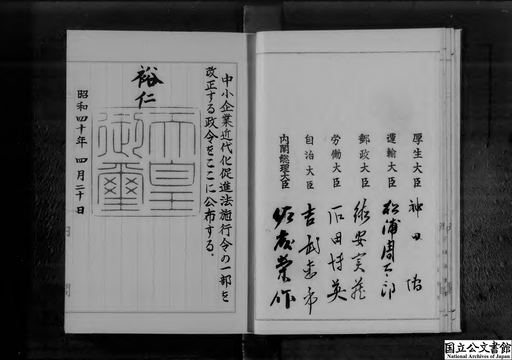 厚生大臣 神田 博
運輸大臣 松浦周太郎
郵政大臣 徳安実蔵
労働大臣 石田博英
自治大臣 吉武恵市
内閣総理大臣 佐藤榮作
中小企業近代化促進法施行令の一部を
改正する政令をここに公布する。
裕仁
天皇
御璽
昭和四十年 四月二十日
国立公文書館
National Archives of Japan